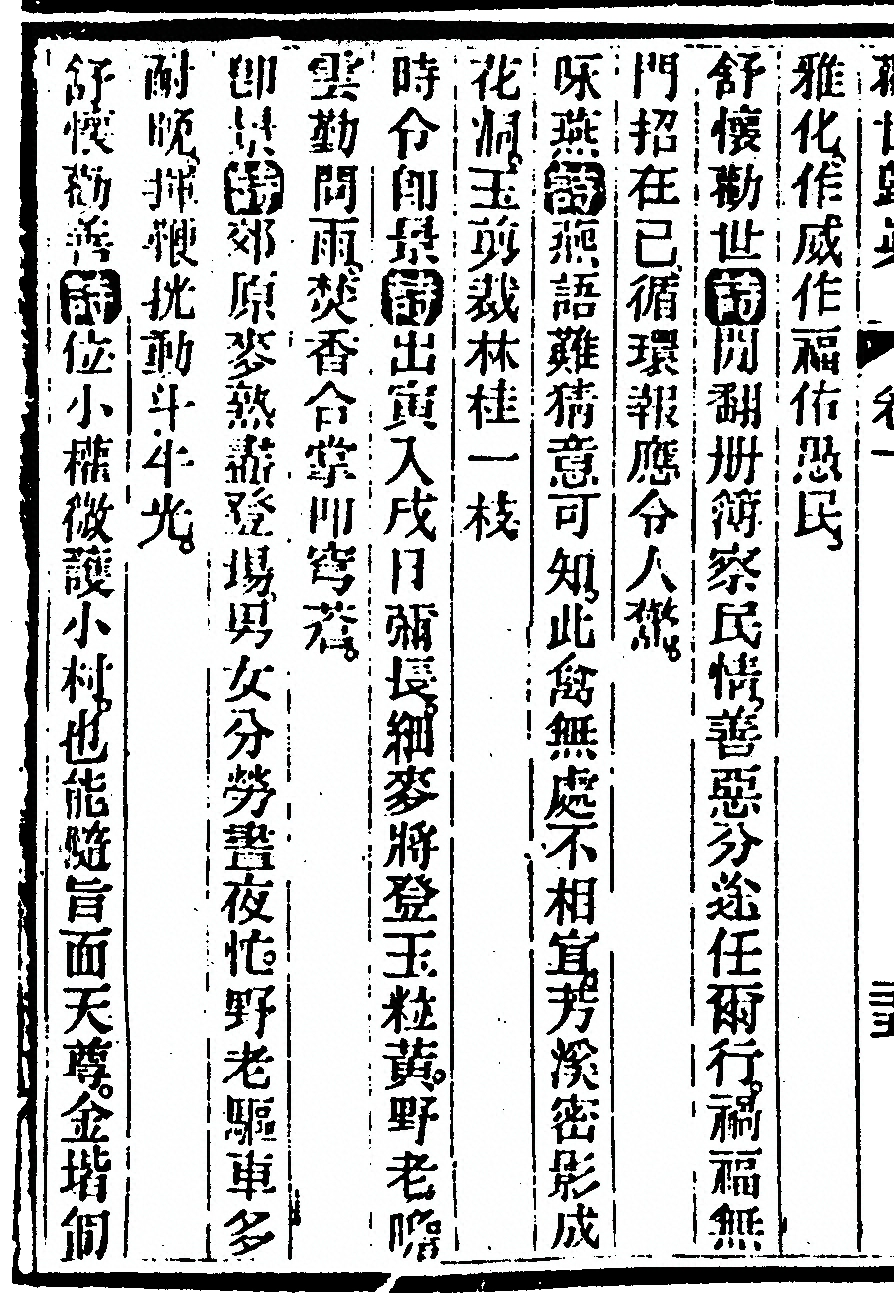 卷一
三五
雅化作威作福佑愚民
舒懷勸世詩閒翻冊簿察民情善惡分途任爾行禍福無
門招在已循環報應令人驚
咏燕詩燕語難猜意可知此禽無處不相宜芳溪密影成
花洞玉剪裁林桂一枝
時令即景詩出寅入戌日彌長細麥將登玉粒黃野老瞻
雲勤問雨焚香合掌叩穹蒼
即景詩郊原麥熟盡登場男女分勞晝夜忙野老驅車多
耐晚揮鞭挑動斗牛光
舒懷勸善詩位小權微護小村也能隨旨面天尊金堦個